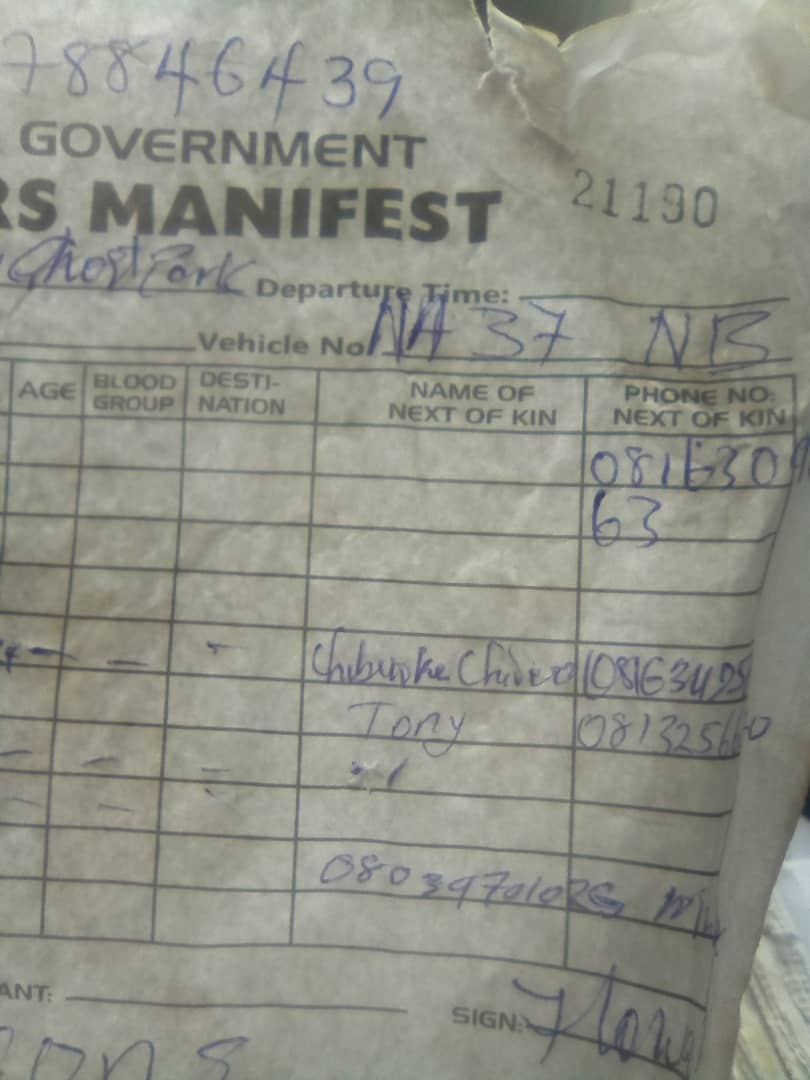 78846439
GOVERNMENT
RS MANIFEST 21190
Ghost Park Departure Time:
Vehicle No NA 37 NB
AGE BLOOD GROUP DESTI-NATION NAME OF NEXT OF KIN PHONE NO: NEXT OF KIN
081630
63
08163495
Tony 08132566
08039701026
ANT: SIGN: